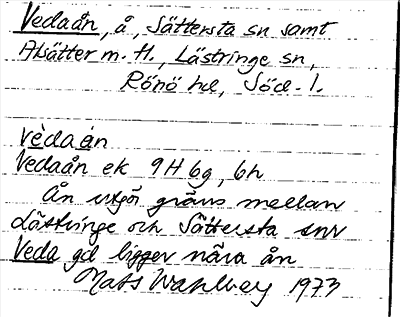 Vedaån, å, Sättersta sn samt
Aksätter m. fl., Lästringe sn,
Rönö hd, Söd. l.
vèdaán
Vedaån ek 9H 6g, 6h
Ån utgör gräns mellan
Lästringe och Sättersta snr
Veda gd ligger nära ån
Mats Wahlberg 1973